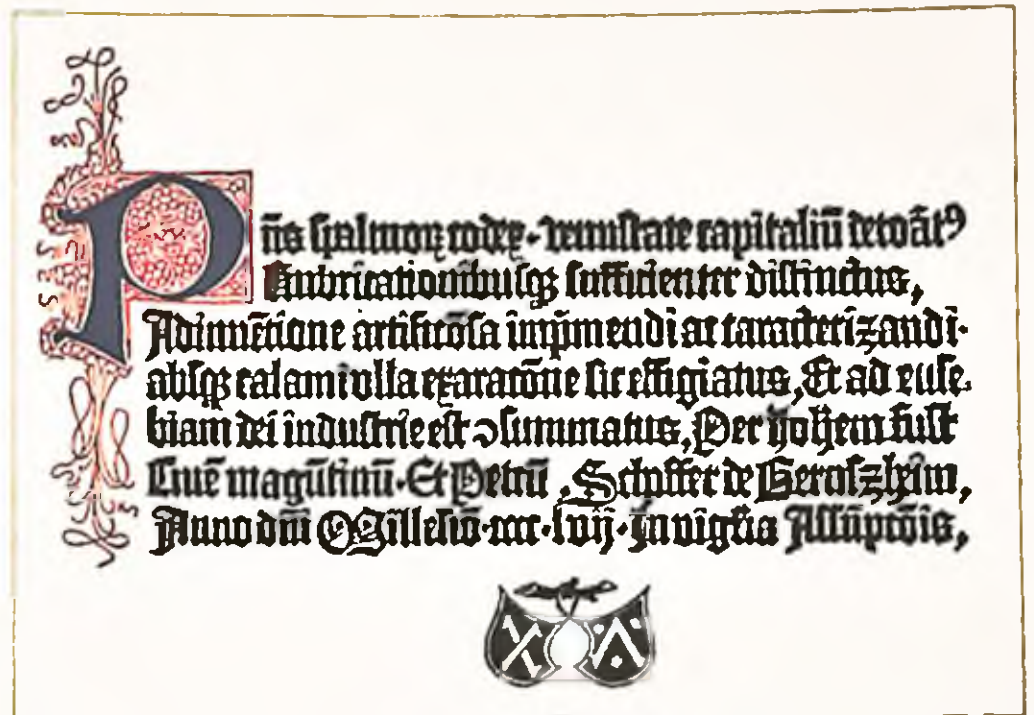 Pñs spalmoꝝ codex · venustate capitaliū decoãtꝰ
Rubricationibusqꝫ sufficienter distinctus,
Adinuētione artificōsa impͥmendi ac caracterizandi·
absqꝫ calami vlla exaracōne sic effigiatus, Et ad euse-
biam dei industrie est ↄsummatus, Per ioh̄em fust
Ciuē magūtinū · Et Petrū, Schiffer de Gernszheim,
Anno dn̄i Millesīo · cccc · lvij · In vigīlia Assūpcōis,